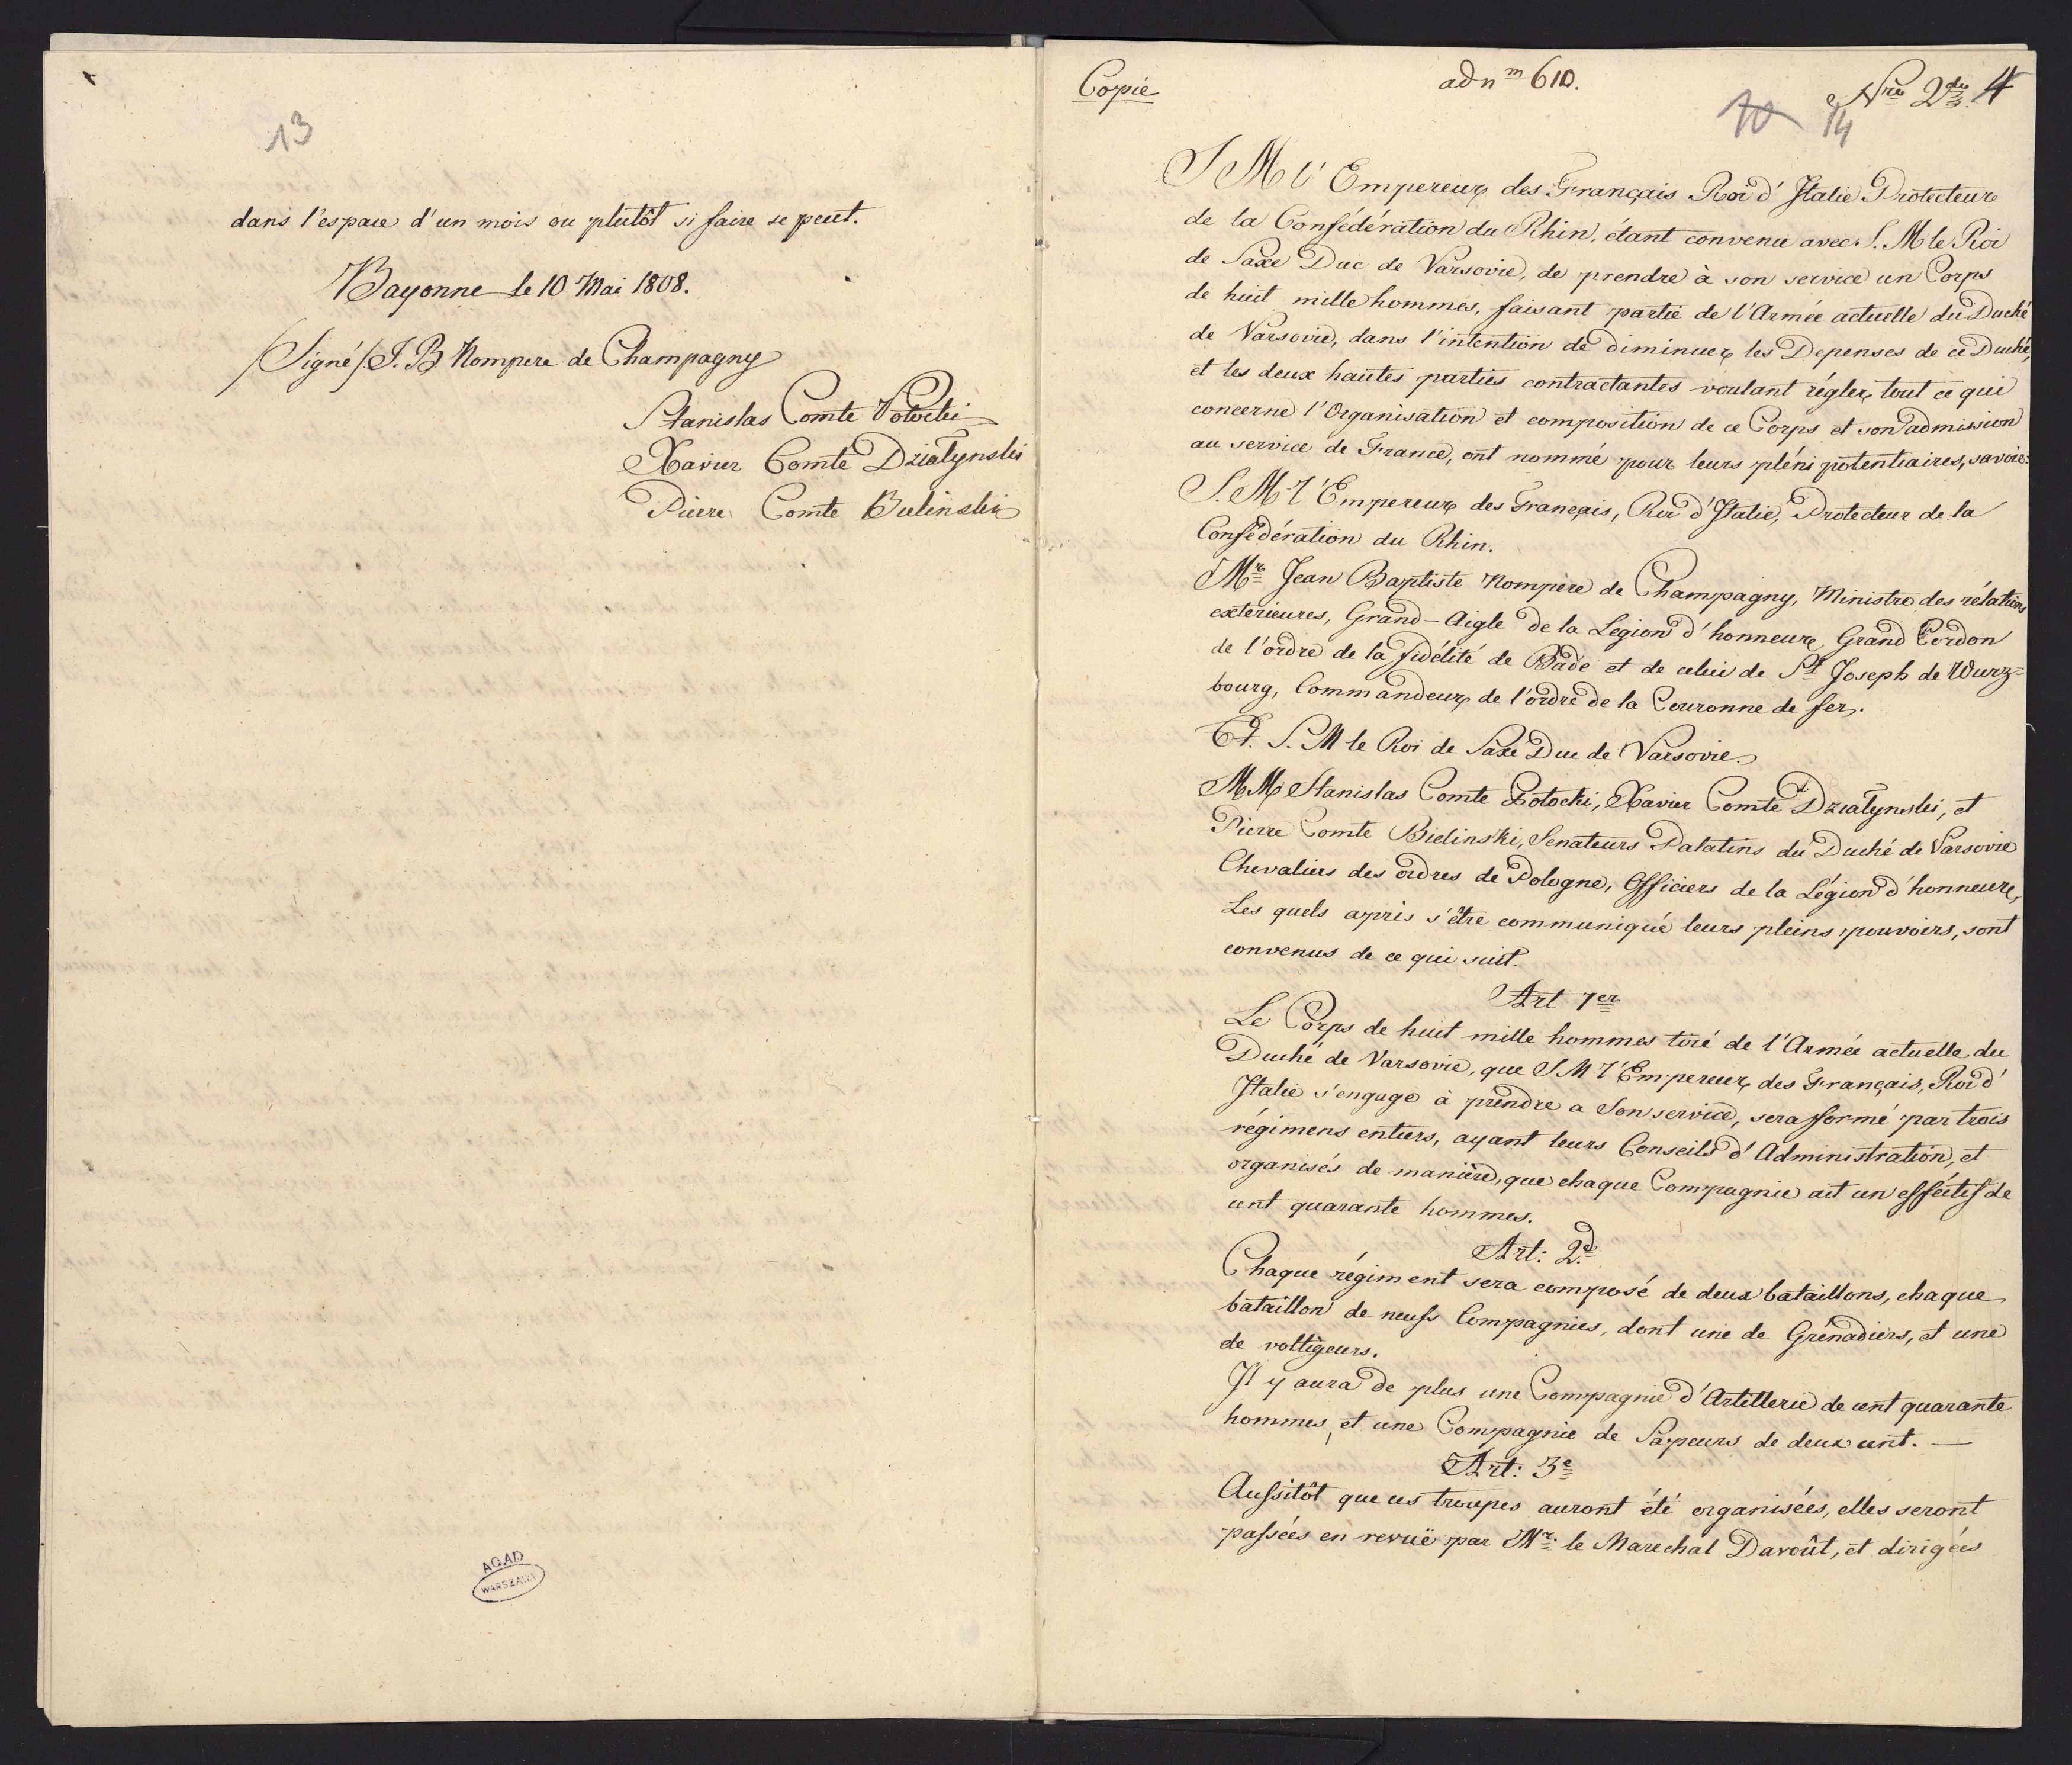 13
dans l'espace d'un mois ou plutôt si faire se peut.
Bayonne le 10 Mai 1808.
/Signé/ J. B Nompere de Champagny
Stanislas Comte Potocki
Xavier Comte Dziatynski
Pierre Comte Bielinski
AGAD
WARSZAWA
Copie
ad nm 610.
Nro 2do 4
10 14
S M l'Empereur des Français Roi d'Italie Protecteur
de la Confédération du Rhin, étant convenu avec S. M le Roi
de Saxe Duc de Varsovie, de prendre à son service un Corps
de huit mille hommes, faisant partie de l'Armée actuelle du Duché
de Varsovie, dans l'intention de diminuer les Depenses de ce Duché,
et les deux hautes parties contractantes voulant régler tout ce qui
concerne l'Organisation et composition de ce Corps et son admission
au service de France, ont nommé pour leurs pléni potentiaires, savoir:
S. M l'Empereur des Français, Roi d'Italie, Protecteur de la
Confédération du Rhin.
Mr Jean Baptiste Nompère de Champagny, Ministre des rélations
exterieures, Grand-Aigle de la Legion d'honneur, Grand Cordon
de l'ordre de la fidélité de Bade et de celui de St Joseph de Wurz=
bourg, Commandeur de l'ordre de la Couronne de fer.
Et. S. M le Roi de Saxe Duc de Varsovie.
M M Stanislas Comte Potocki, Xavier Comte Dziatynski, et
Pierre Comte Bielinski, Senateurs Palatins du Duché de Varsovie
Chevaliers des ordres de Pologne, Officiers de la Légion d'honneur,
Les quels aprés s'être communiqué leurs pleins pouvoirs, sont
convenus de ce qui suit.
Art 1er
Le Corps de huit mille hommes tiré de l'Armée actuelle du
Duché de Varsovie, que S M l'Empereur des Français, Roi d'
Italie s'engage à prendre a Son service, sera formé par trois
régimens entiers, ayant leurs Conseils d'Administration, et
organisés de manière, que chaque Compagnie ait un efféctif de
cent quarante hommes.
Art: 2d
Chaque régiment sera composé de deux bataillons, chaque
bataillon de neufs Compagnies, dont une de Grénadiers, et une
de voltigeurs.
Il y aura de plus une Compagnie d'Artillerie de cent quarante
hommes, et une Compagnie de Sapeurs de deux cent. —
Art: 3e
Aussitôt que ces troupes auront été organisées, elles seront
passées en revuë par Mr le Marechal Davoût, et dirigées